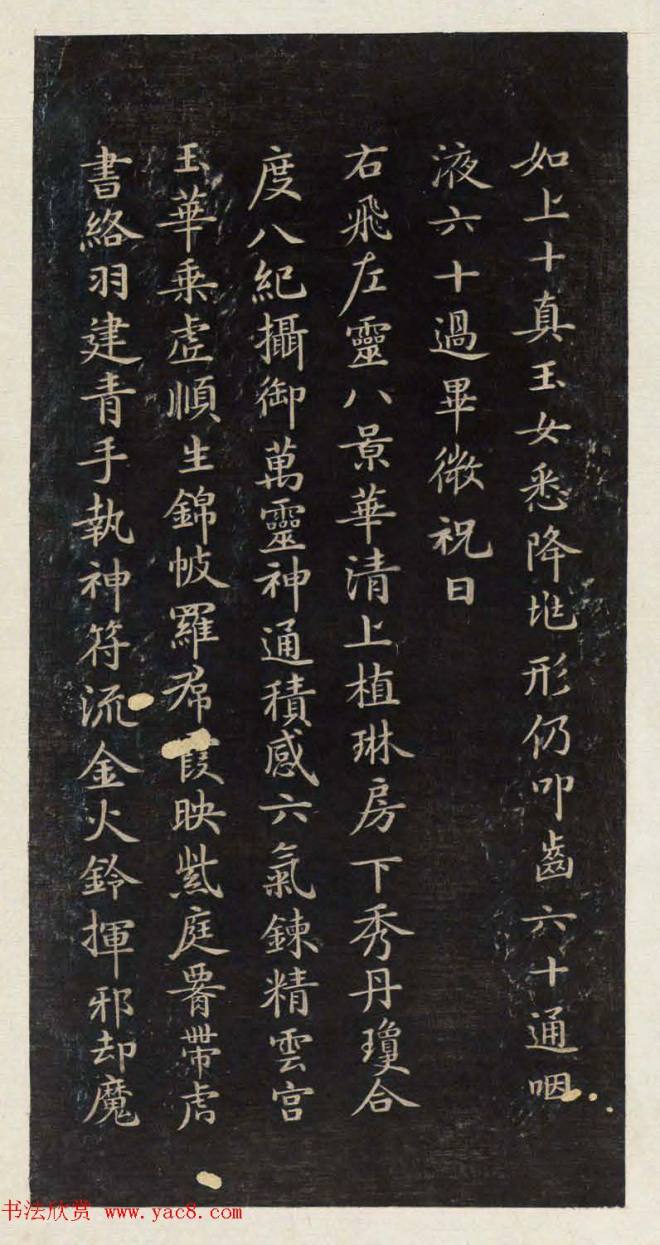 如上十真玉女悉降地形仍叩齒六十通咽
液六十過畢微祝曰
右飛左靈八景華清上植琳房下秀丹瓊合
度八紀攝御萬靈神通積感六氣鍊精雲宮
玉華乗虛順生錦帔羅帬霞映紫庭腰帶虎
書絡羽建青手執神符流金火鈴揮邪却魔
书法欣赏 www.yac8.com